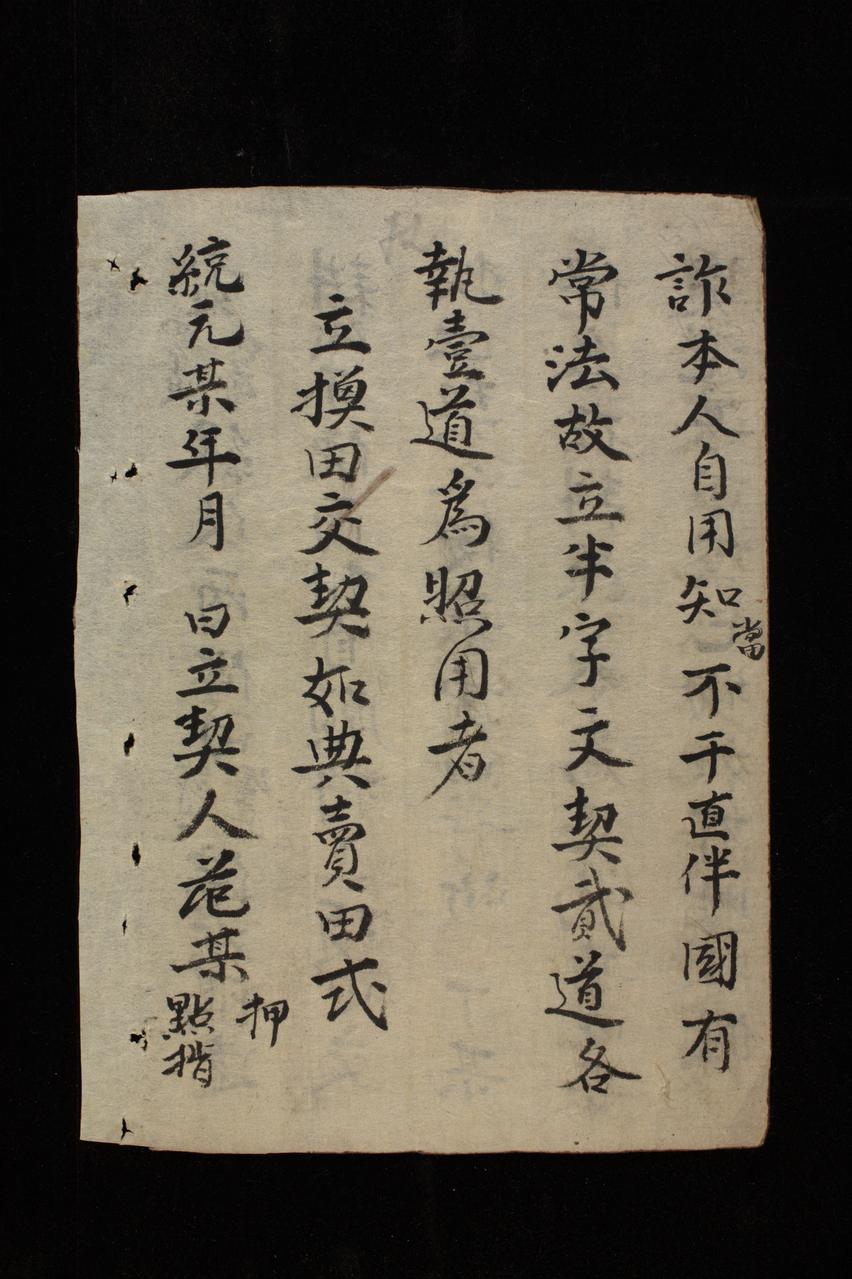 詐本人自用知當不干直伴國有
常法故立半字文契貳道各
執壹道爲照用者
立換田交契如典賣田式
統元某年月 日立契人范某 押 點指